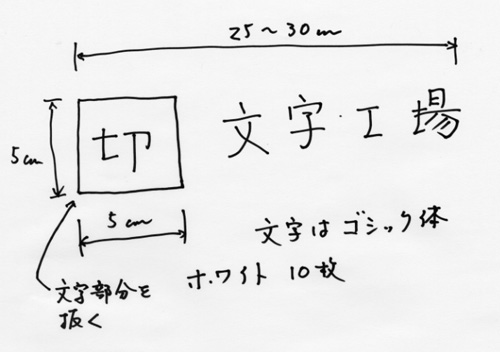 25〜30cm
5cm
切
文字・工場
5cm
文字は ゴシック体
ホワイト 10枚
文字部分を
抜く